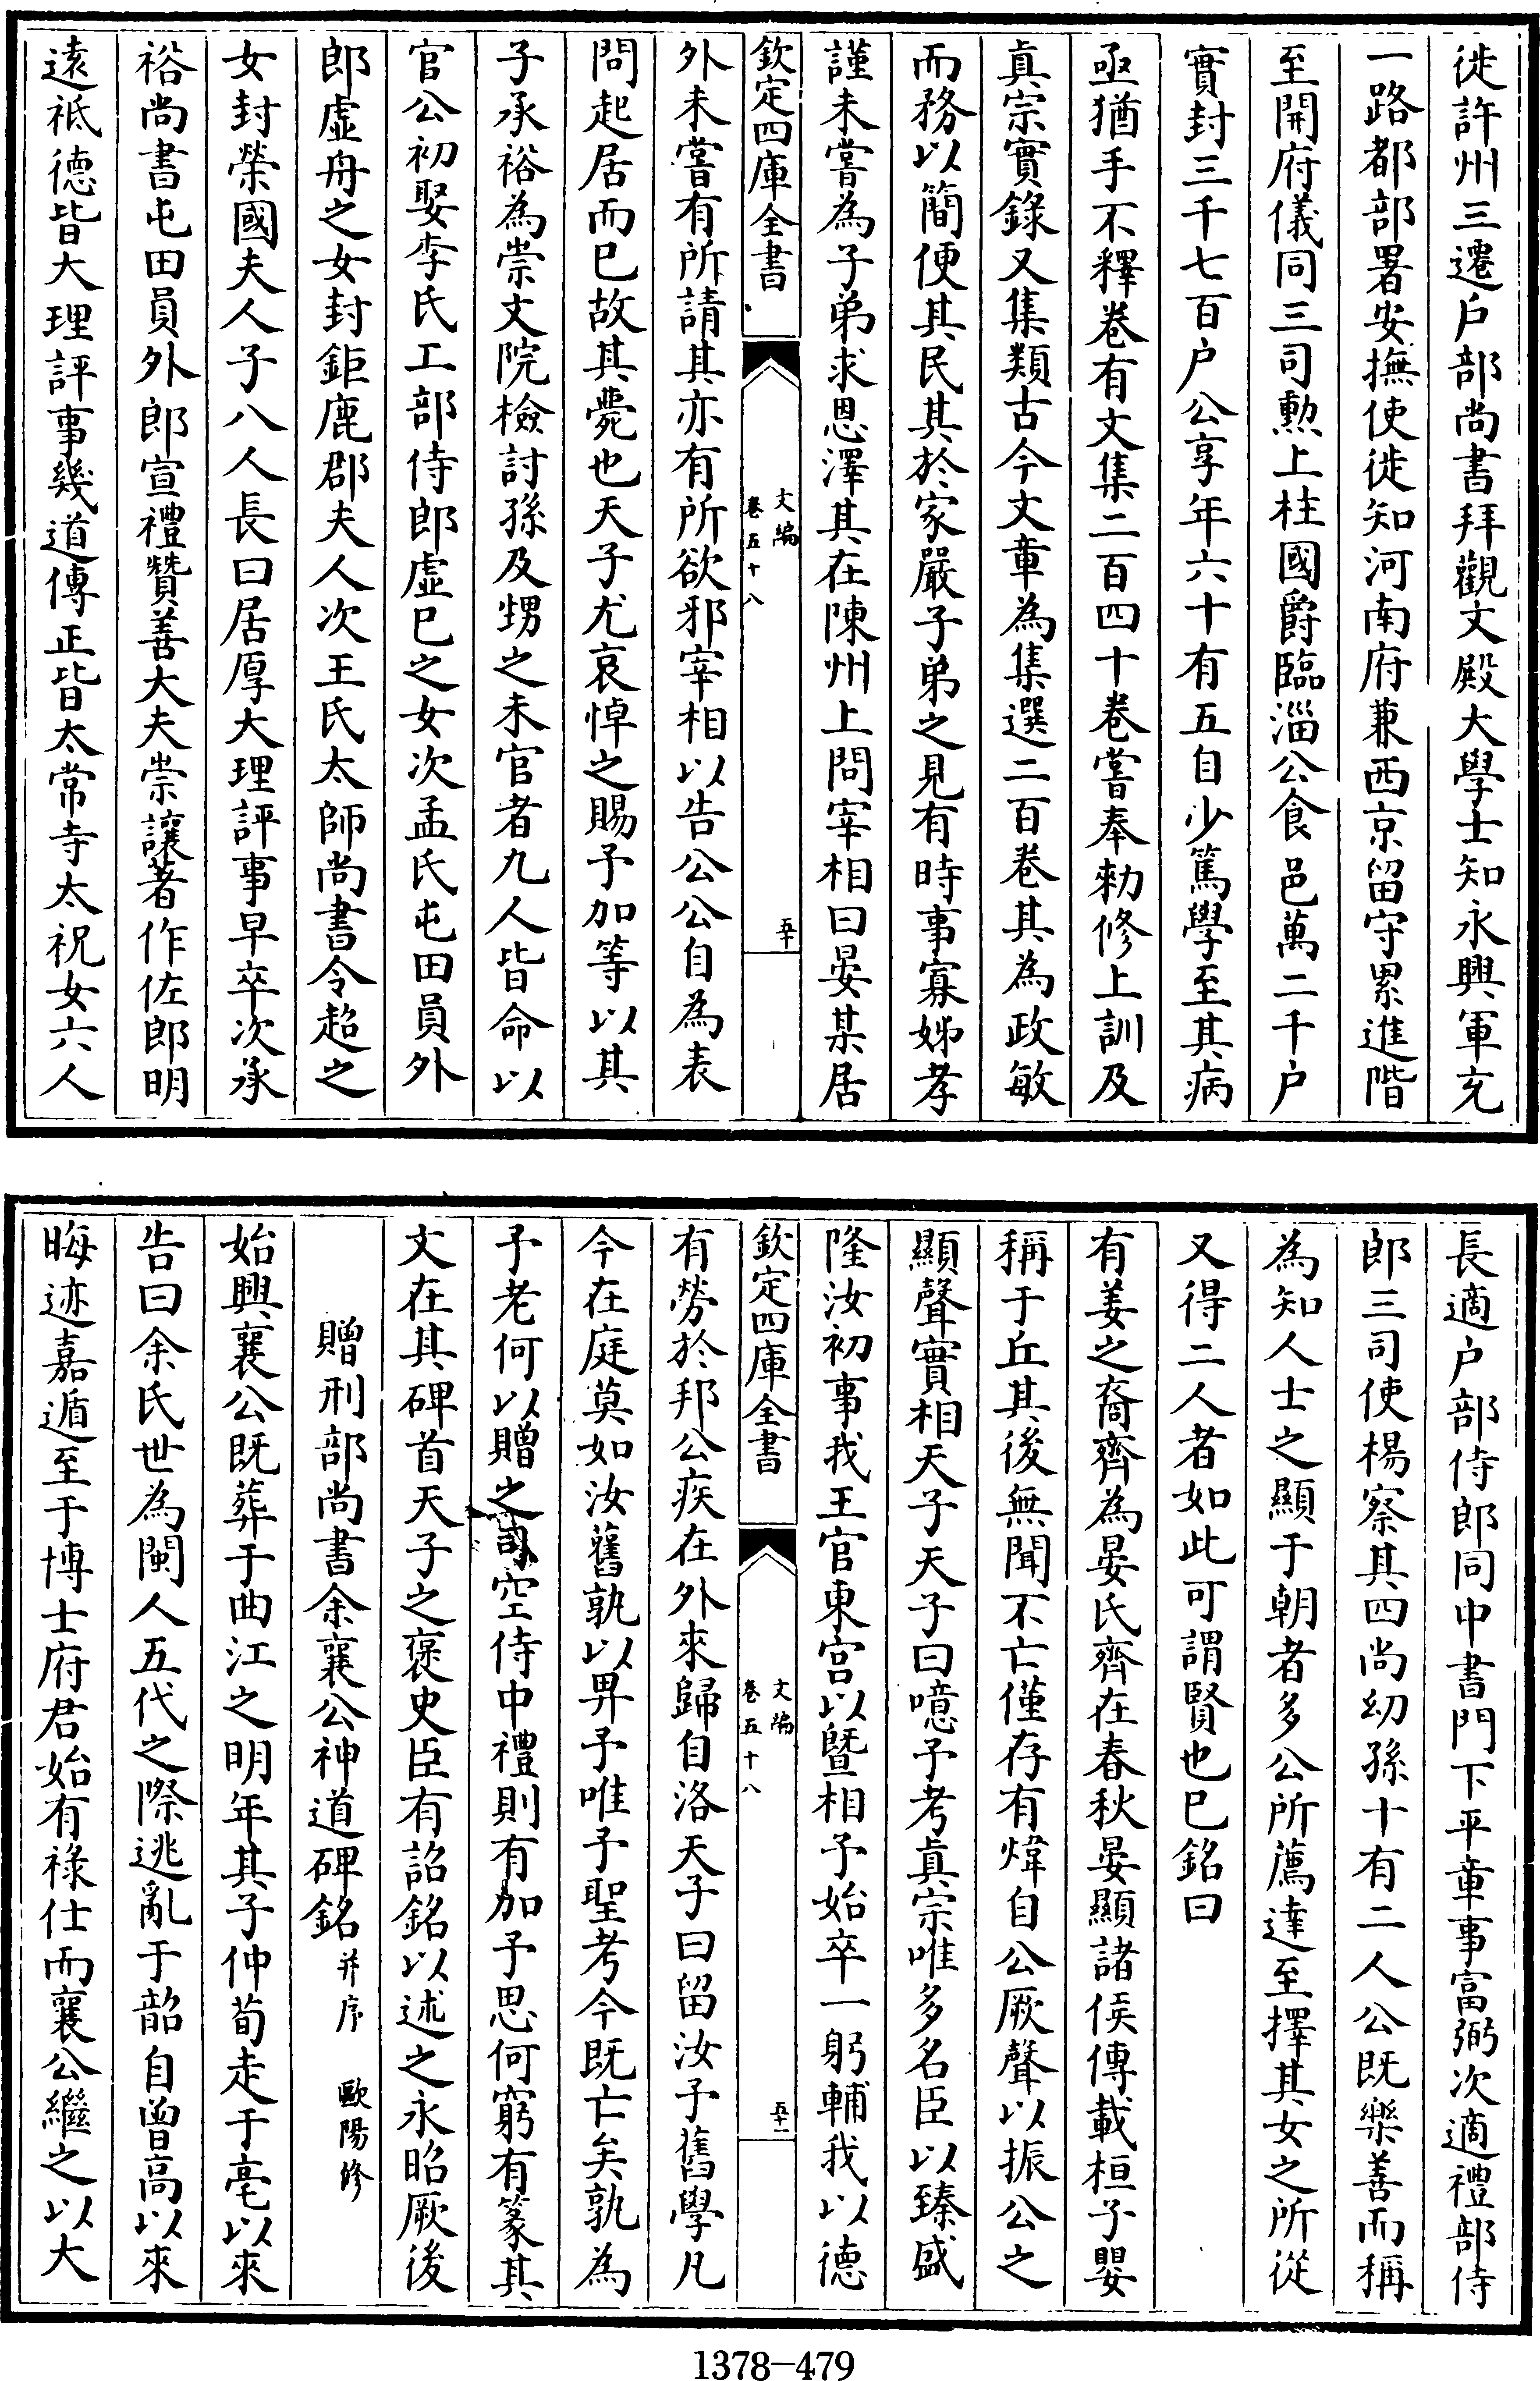 徙許州三遷戶部尚書拜觀文殿大學士知永興軍充
一路都部署安撫使徙知河南府兼西京留守累進階
至開府儀同三司勲上柱國爵臨淄公食邑萬二千户
實封三千七百户公享年六十有五自少篤學至其病
亟猶手不釋卷有文集二百四十卷嘗奉勅修上訓及
真宗實錄又集類古今文章為集選二百卷其為政敏
而務以簡便其民其於家嚴子弟之見有時事寡姊孝
謹未嘗為子弟求恩澤其在陳州上問宰相曰晏某居
欽定四庫全書
文編
卷五十八
五十
外未嘗有所請其亦有所欲邪宰相以告公公自為表
問起居而已故其薨也天子尤哀悼之賜予加等以其
子承裕為崇文院檢討孫及甥之未官者九人皆命以
官公初娶李氏工部侍郎虛已之女次孟氏屯田員外
郎虛舟之女封鉅鹿郡夫人次王氏太師尚書令超之
女封榮國夫人子八人長曰居厚大理評事早卒次承
裕尚書屯田員外郎宣禮贊善大夫崇讓著作佐郎明
遠祗德皆大理評事幾道傳正皆太常寺太祝女六人
長適户部侍郎同中書門下平章事富弼次適禮部侍
郎三司使楊察其四尚幼孫十有二人公既樂善而稱
為知人士之顯于朝者多公所薦達至擇其女之所從
又得二人者如此可謂賢也已銘曰
有姜之裔齊為晏氏齊在春秋晏顯諸侯傳載桓子嬰
稱于丘其後無聞不亡僅存有煒自公厥聲以振公之
顯聲實相天子天子曰噫予考真宗唯多名臣以臻盛
隆汝初事我王官東宫以暨相予始卒一躬輔我以德
欽定四庫全書
文編
卷五十八
五十一
有勞於邦公疾在外來歸自洛天子曰留汝予舊學凡
今在庭莫如汝舊孰以畀予唯予聖考今既亡矣孰為
予老何以贈之司空侍中禮則有加予思何窮有篆其
文在其碑首天子之褒史臣有詔銘以述之永昭厥後
贈刑部尚書余襄公神道碑銘并序 歐陽修
始興襄公既葬于曲江之明年其子仲荀走于亳以來
告曰余氏世為閩人五代之際逃亂于韶自曾高以來
晦迹嘉遁至于博士府君始有祿仕而襄公繼之以大
1378-479